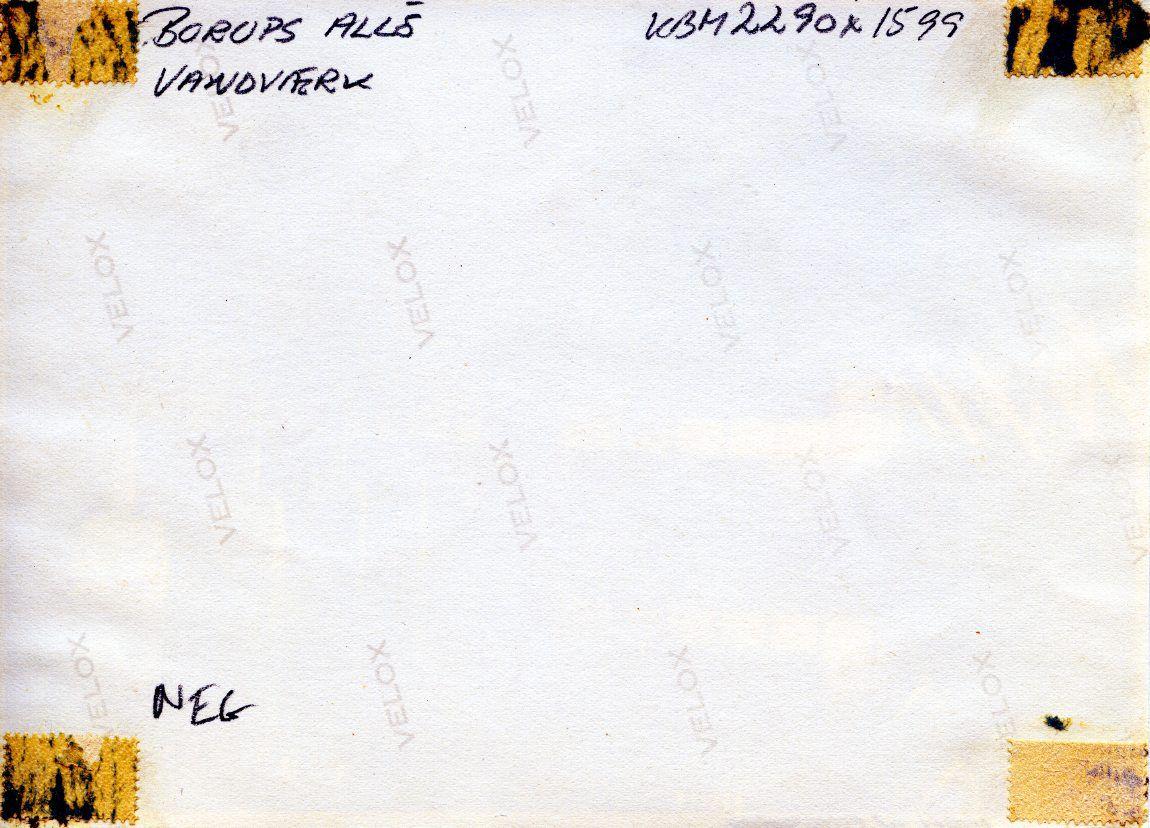 BORUPS ALLÉ
VANDVÆRK
KBM2290x1599
VELOX VELOX VELOX
VELOX VELOX VELOX VELOX
VELOX VELOX VELOX VELOX
VELOX VELOX VELOX VELOX
NEG